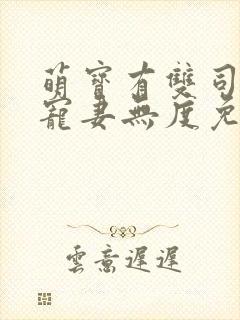 萌寶有雙司
寵妻無度免
雲意遲遲